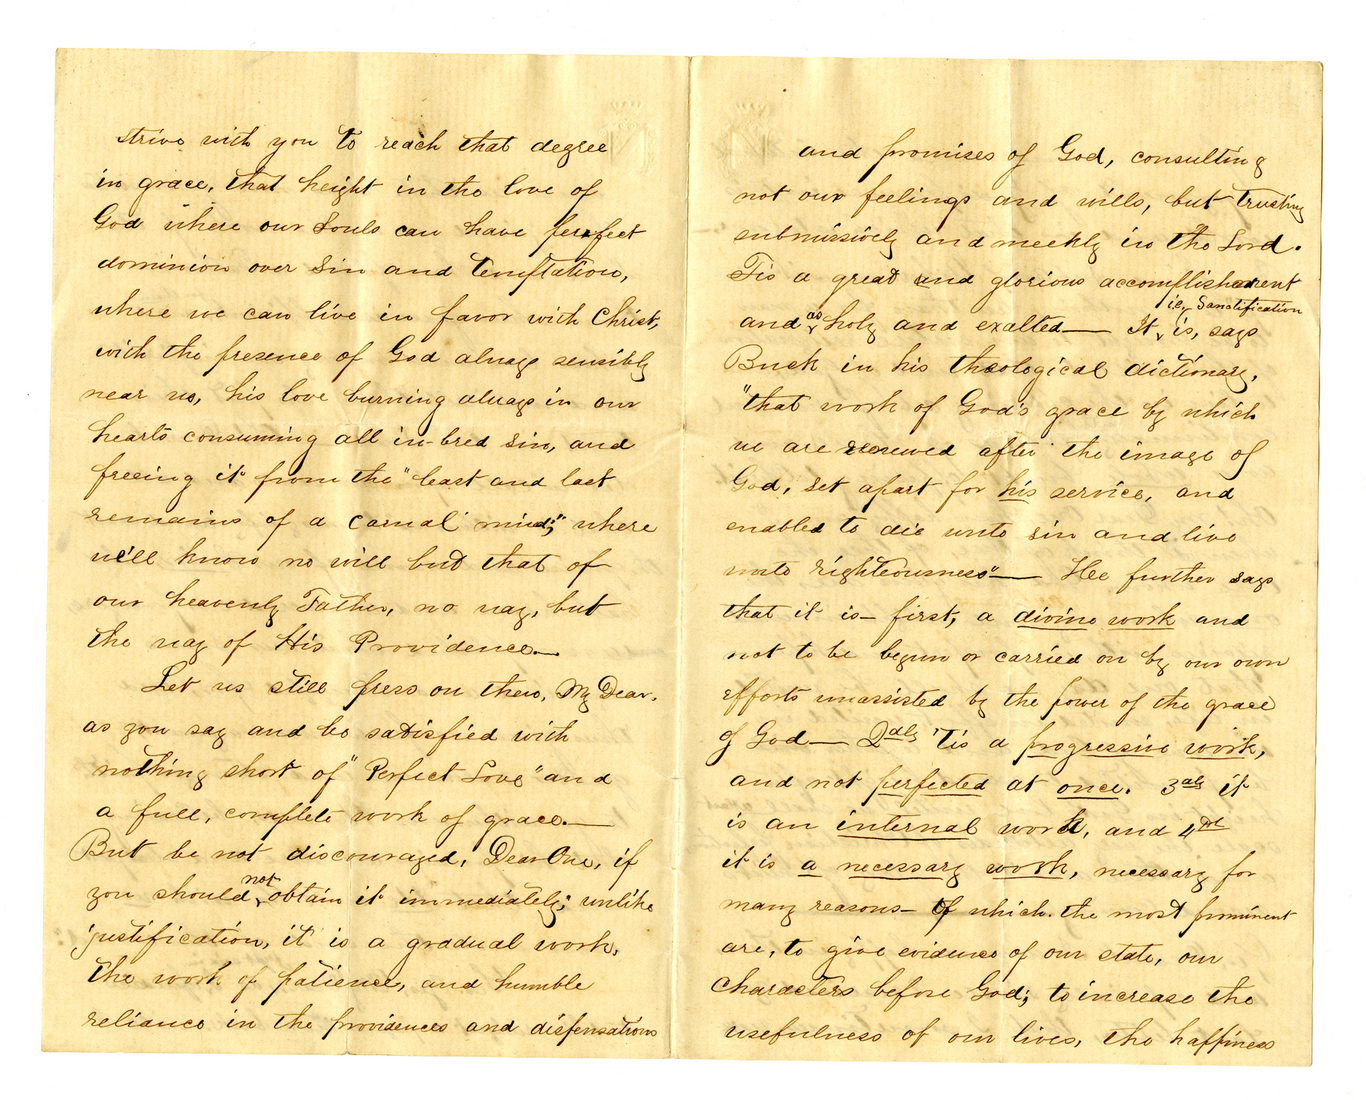 strive with you to reach that degree
in grace, that height in the love of
God where our Souls can have perfect
dominion over Sin and Temptation,
where we can live in favor with Christ,
with the presence of God always sensibly
near us, his love burning always in our
hearts consuming all in-bred sin, and
freeing it from the "least and last
remains of a carnal mind;" where
we'll know no will but that of
our heavenly Father, no way, but
the way of His Providence.—
Let us still press on then, My Dear.
as you say and be satisfied with
nothing short of "Perfect Love" and
a full, complete work of grace.—
But be not discouraged, Dear One, if
you should not obtain it immediately; unlike
justification, it is a gradual work,
the work of patience, and humble
reliance in the providences and dispensations
and promises of God, consulting
not our feelings and wills, but trusting
submissively and meekly in the Lord.
Tis a great and glorious accomplishment
and as holy and exalted— It ie, Sanctification is, says
Buck in his theological dictionary,
"that work of God's grace by which
we are renewed after the image of
God, set apart for his service, and
enabled to die unto sin and live
unto righteousness"— He further says
that it is— first, a divine work and
not to be begun or carried on by our own
efforts unassisted by the power of the grace
of God— 2dly 'Tis a progressive work,
and not perfected at once. 3dly it
is an internal work, and 4th
it is a necessary work, necessary for
many reasons— of which the most prominent
are, to give evidence of our state, our
characters before God; to increase the
usefulness of our lives, the happiness